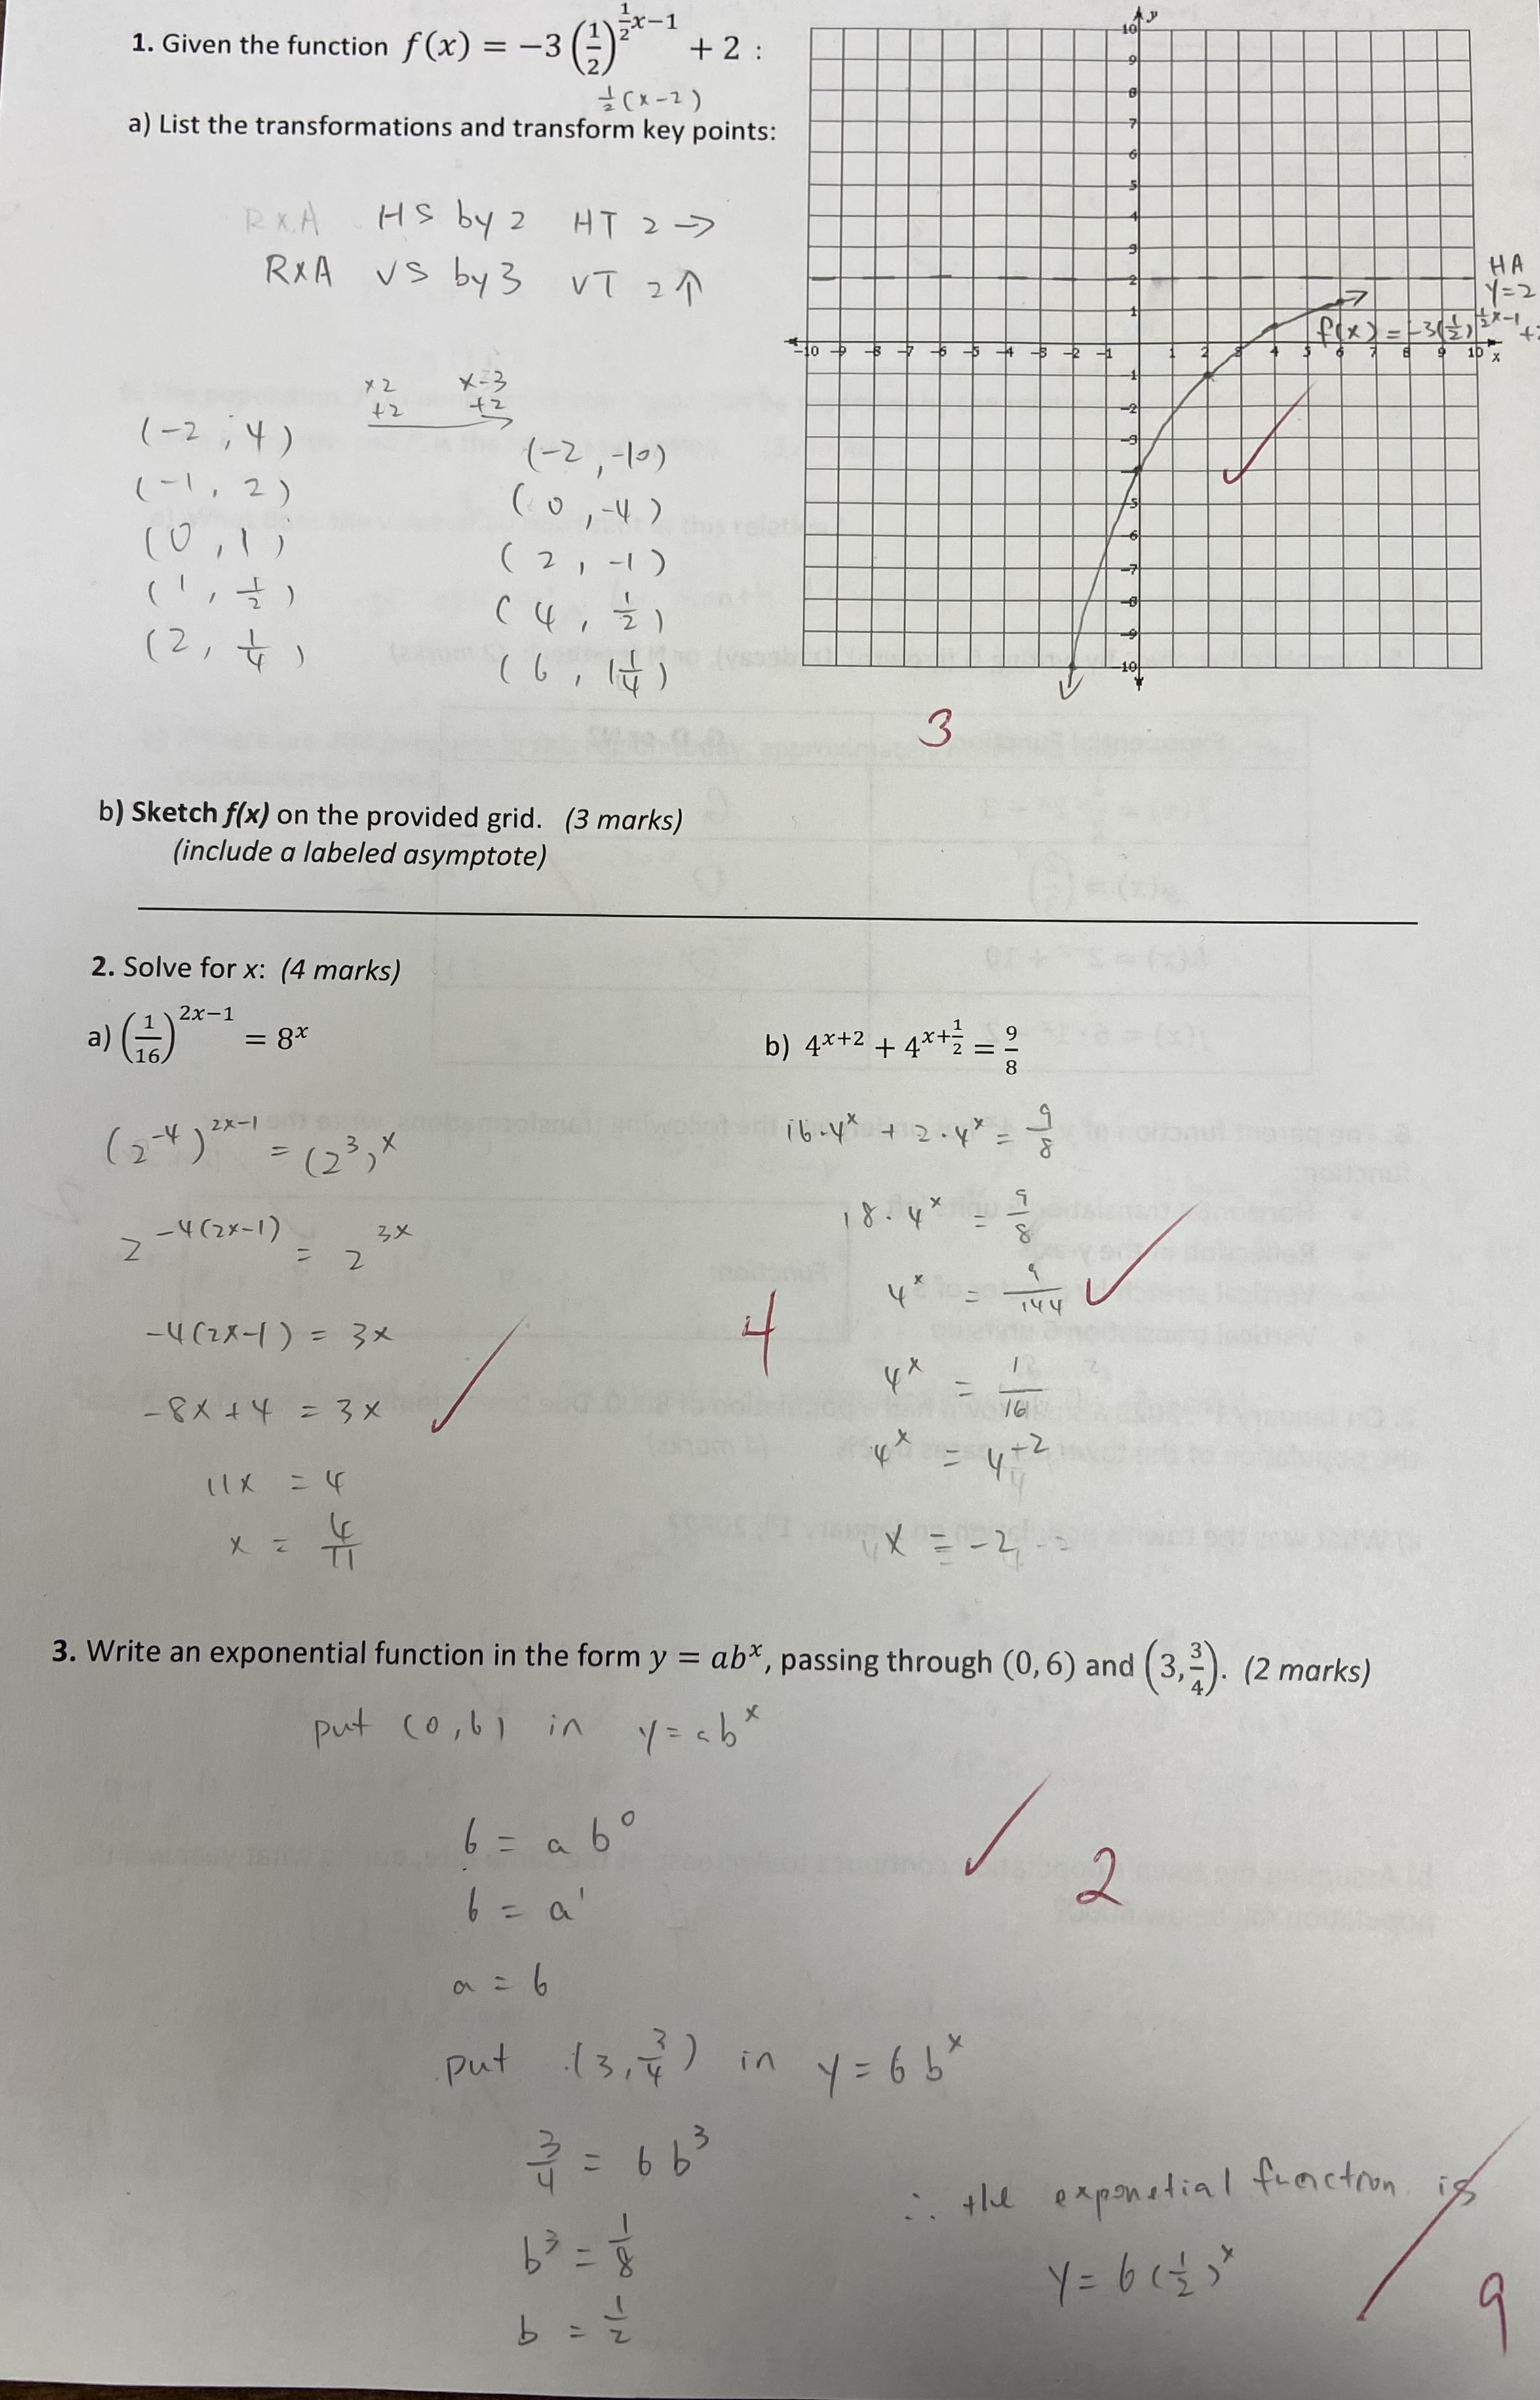 1. Given the function f(x) = −3(1/2)^(1/2x−1) + 2 :
1/2(x-2)
a) List the transformations and transform key points:
RxA HS by 2 HT 2 →
RxA VS by 3 VT 2 ↑
x2 x-3
+2 +2
(-2, 4) (-2, -10)
(-1, 2) (0, -4)
(0, 1) (2, -1)
(1, 1/2) (4, 1/2)
(2, 1/4) (6, 1 1/4)
y
10
9
8
7
6
5
4
3
2
1
HA
y=2
f(x) = -3(1/2)^(1/2x-1) +2
-10 -9 -8 -7 -6 -5 -4 -3 -2 -1 1 2 3 4 5 6 7 8 9 10 x
-1
-2
-3
-5
-6
-7
-8
-9
-10
3
b) Sketch f(x) on the provided grid. (3 marks)
(include a labeled asymptote)
2. Solve for x: (4 marks)
a) (1/16)^(2x−1) = 8^x
(2^-4)^(2x-1) = (2^3)^x
2^(-4(2x-1)) = 2^(3x)
-4(2x-1) = 3x
-8x+4 = 3x
11x = 4
x = 4/11
b) 4^(x+2) + 4^(x+1/2) = 9/8
16·4^x + 2·4^x = 9/8
18·4^x = 9/8
4^x = 9/144
4^x = 1/16
4^x = 4^-2
x = -2
4
3. Write an exponential function in the form y = ab^x, passing through (0, 6) and (3, 3/4). (2 marks)
put (0,6) in y=ab^x
6 = a b^0
6 = a'
a = 6
2
put (3, 3/4) in y = 6 b^x
3/4 = 6 b^3
b^3 = 1/8
b = 1/2
∴ the exponetial function is
y = 6(1/2)^x
9